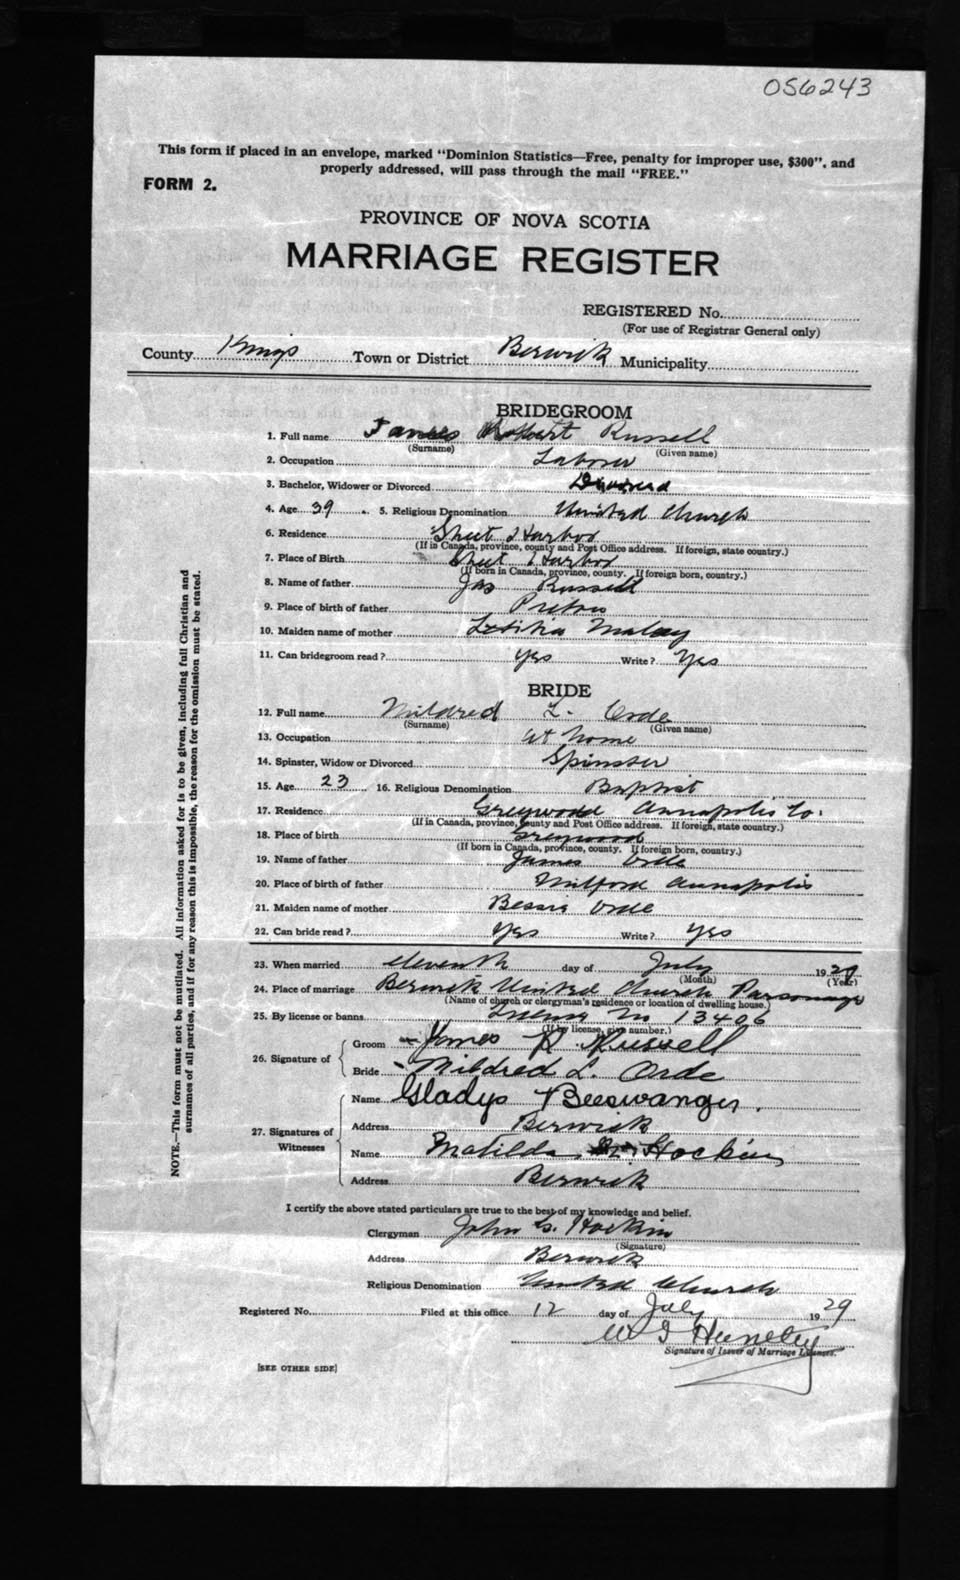 056243
This form if placed in an envelope, marked "Dominion Statistics—Free, penalty for improper use, $300", and
properly addressed, will pass through the mail "FREE."
FORM 2.
PROVINCE OF NOVA SCOTIA
MARRIAGE REGISTER
REGISTERED No.
(For use of Registrar General only)
County Kings Town or District Berwick Municipality
BRIDEGROOM
1. Full name James Robert Russell
(Surname) (Given name)
2. Occupation Laborer
3. Bachelor, Widower or Divorced Divorced
4. Age 39 5. Religious Denomination United Church
6. Residence Sheet Harbor
(If in Canada, province, county and Post Office address. If foreign, state country.)
7. Place of Birth Sheet Harbor
(If born in Canada, province, county. If foreign born, country.)
8. Name of father Jas Russell
9. Place of birth of father Pictou
10. Maiden name of mother Letitia Malay
11. Can bridegroom read? yes Write? Yes
BRIDE
12. Full name Mildred L. Orde
(Surname) (Given name)
13. Occupation at home
14. Spinster, Widow or Divorced Spinster
15. Age 23 16. Religious Denomination Baptist
17. Residence Greywood Annapolis Co.
(If in Canada, province, county and Post Office address. If foreign, state country.)
18. Place of birth Greywood
(If born in Canada, province, county. If foreign born, country.)
19. Name of father James Orde
20. Place of birth of father Milford Annapolis
21. Maiden name of mother Bessie Orde
22. Can bride read? Yes Write? Yes
23. When married eleventh day of July 1929
(Month) (Year)
24. Place of marriage Berwick United Church Parsonage
(Name of church or clergyman's residence or location of dwelling house.)
25. By license or banns License No 13406
(If by license, give number.)
26. Signature of Groom James R Russell
Bride Mildred L. Orde
27. Signatures of Witnesses
Name Gladys Beeswanger.
Address Berwick
Name Matilda Hockin
Address Berwick
I certify the above stated particulars are true to the best of my knowledge and belief.
Clergyman John G. Hockin
(Signature)
Address Berwick
Religious Denomination United Church
Registered No. Filed at this office 12 day of July 1929
W G Huntley
Signature of Issuer of Marriage Licenses.
[SEE OTHER SIDE]
NOTE.—This form must not be mutilated. All information asked for is to be given, including full Christian and
surnames of all parties, and if for any reason this is impossible, the reason for the omission must be stated.